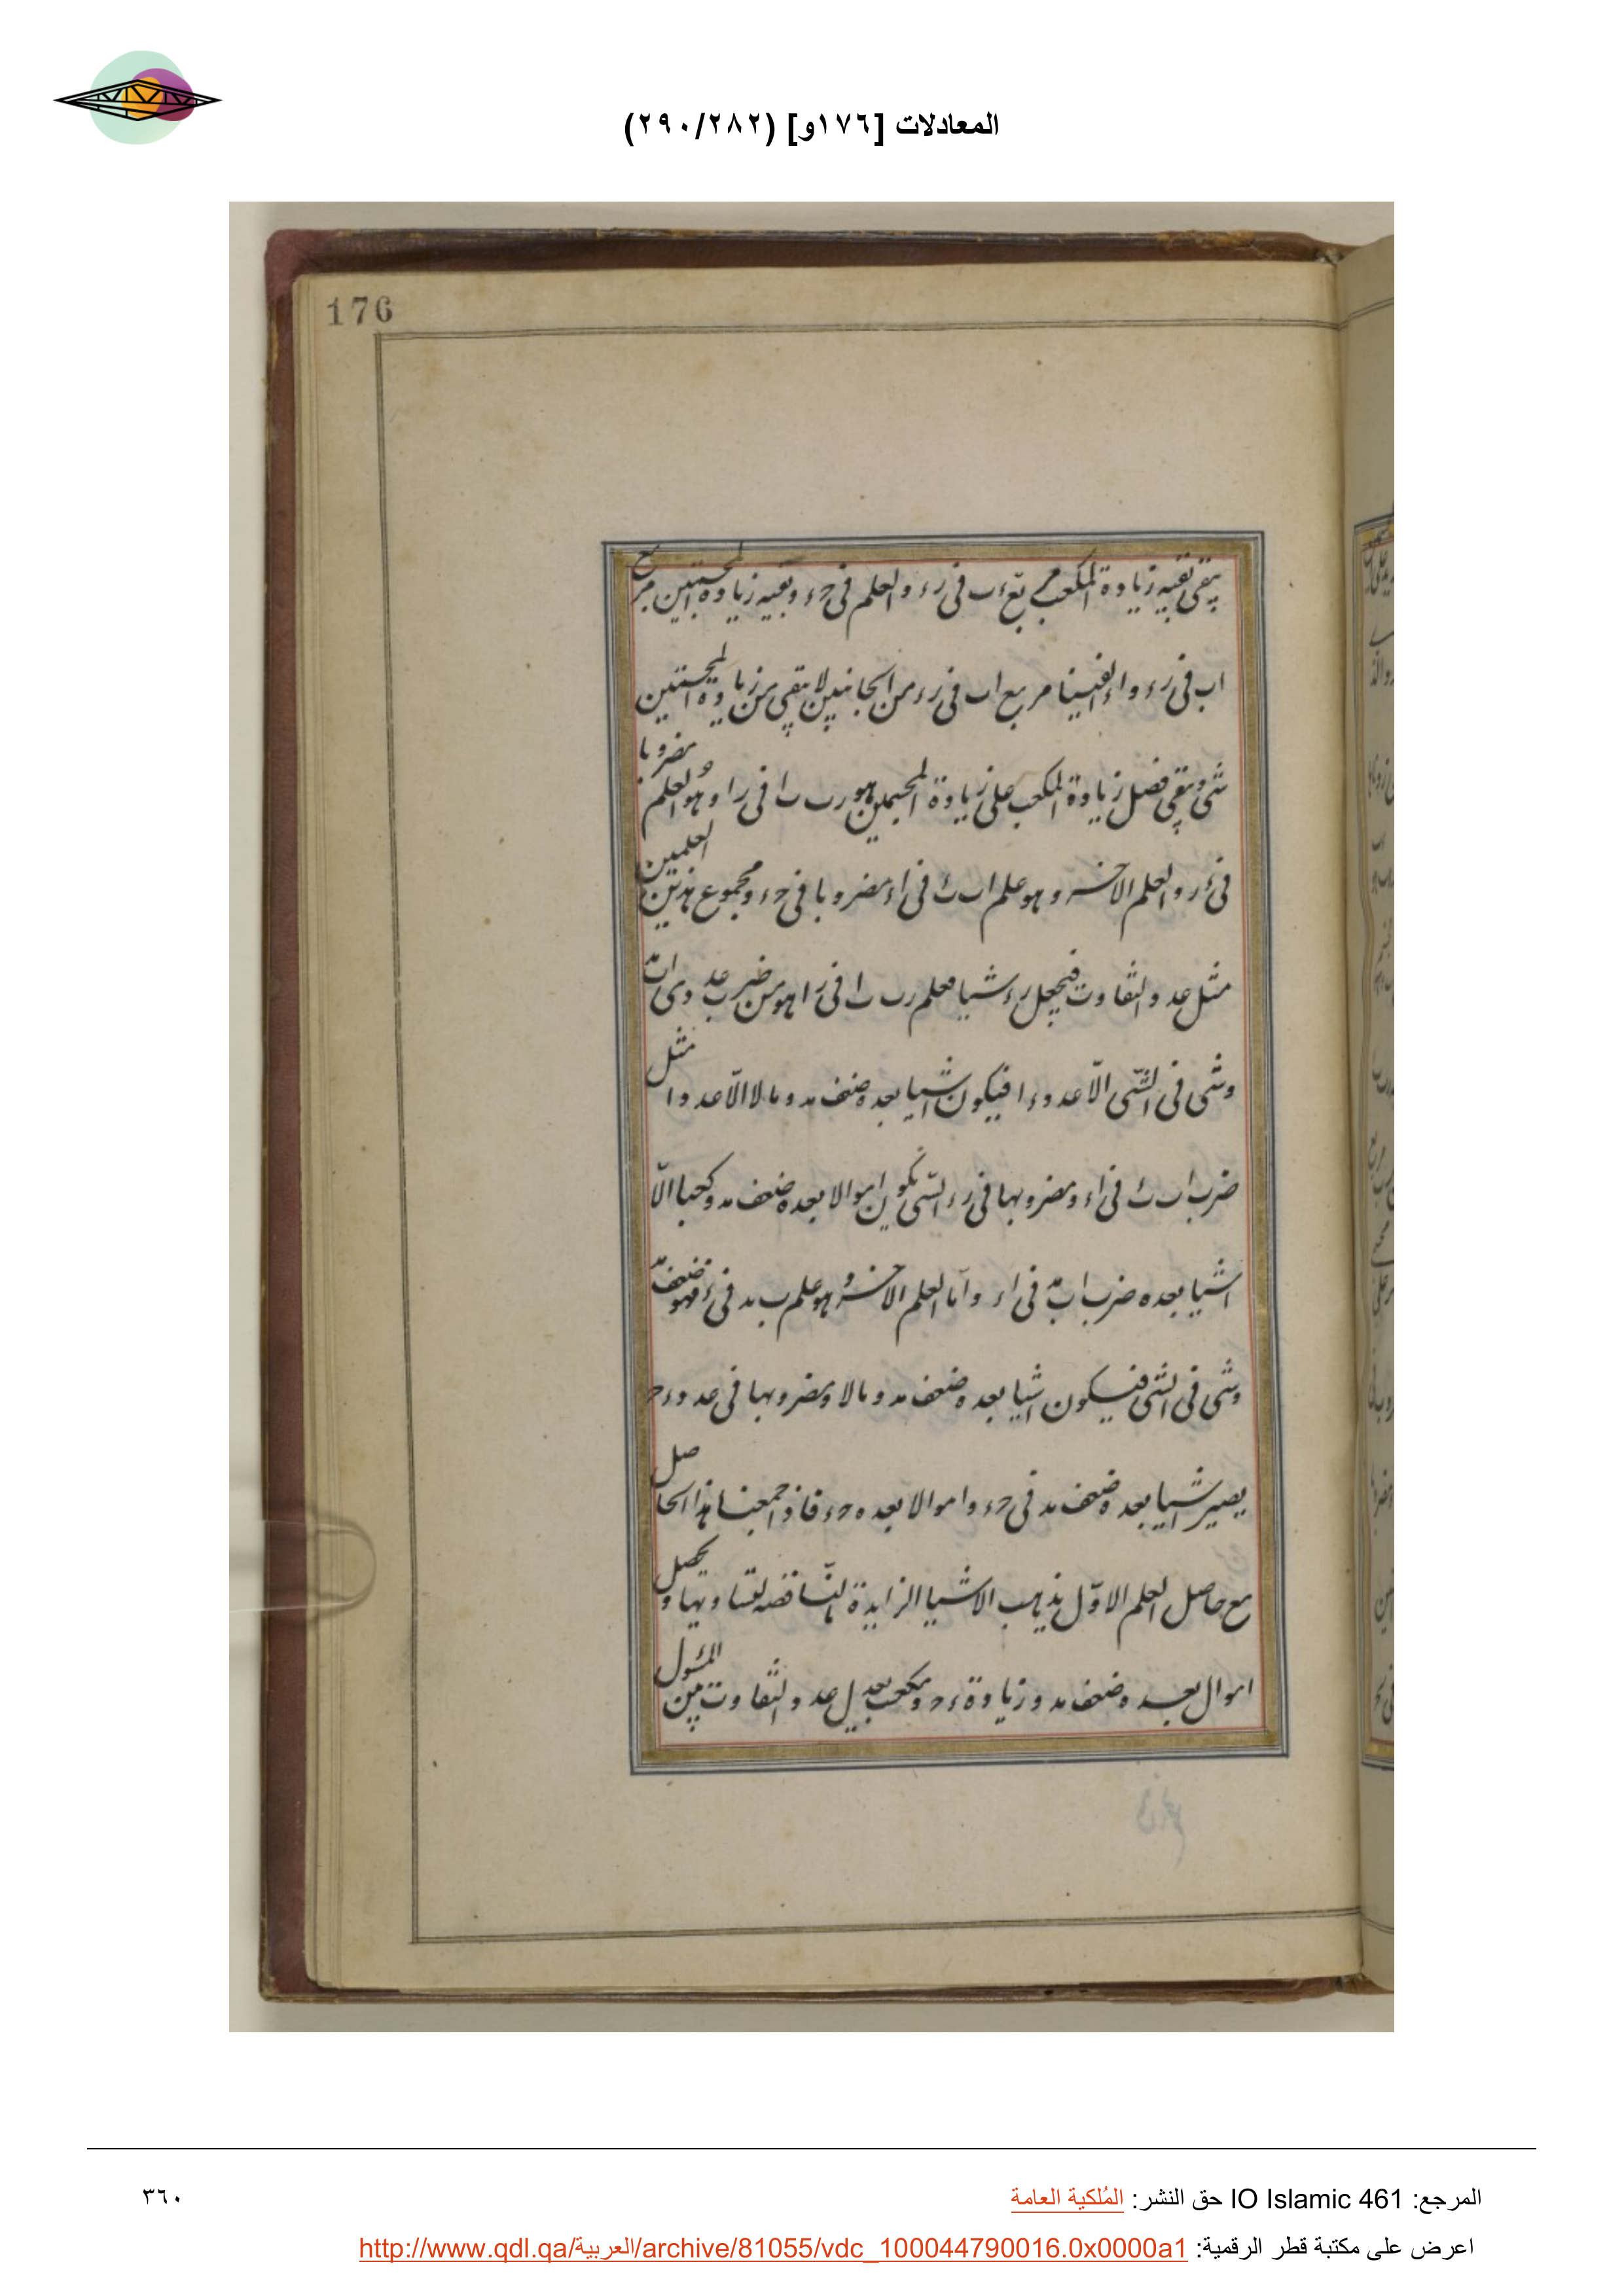 المعادلات [١٧٦و] (٢٩٠/٢٨٢)
176
يبقى بقيه زيادة المكعب مربع اب فى رء والعلم فى حء وبقيه زيادة المجسمتين مربع
اب فى رء واذا القينا مربع اب فى رء من الجانبين لا يبقى من زيادة المجسمتين
شى ويبقى فضل زيادة المكعب على زيادة المجسمتين هو رب ب ا فى را وهو العلم مضروبا
فى ءر والعلم الاخر وهو علم اب فى اء مضروبا فى حء ومجموع هذين العلمين
مثل عدد التفاوت فيجعل رء شيا فعلم رب ب ا فى را هو من ضرب عدد
وشى فى الشى الا عدد ءا فيكون اشيا بعده ضعف مد ومالا الا عددا مثل
ضرب اب فى اء ومضروبها فى رء الشى يكون اموالا بعده ضعف مد وكعبا الا
اشيا بعده ضرب اب فى اء واما العلم الاخر وهو علم ب مد فى فهو ضعف
وشى فى الشى فيكون اشيا بعده ضعف مد ومالا ومضروبها فى عدد ءح
يصير اشيا بعده ضعف مد فى حء واموالا بعده حء فاذا جمعنا هذا الحاصل
مع حاصل العلم الاول يذهب الاشيا الزايدة بالناقصه لتساويهما ويحصل
اموال بعده ضعف مد وزيادة ءح ومكعب يعدل عدد التفاوت بين المسئول
المرجع: IO Islamic 461 حق النشر: المُلكية العامة
٣٦٠
اعرض على مكتبة قطر الرقمية: http://www.qdl.qa/العربية/archive/81055/vdc_100044790016.0x0000a1